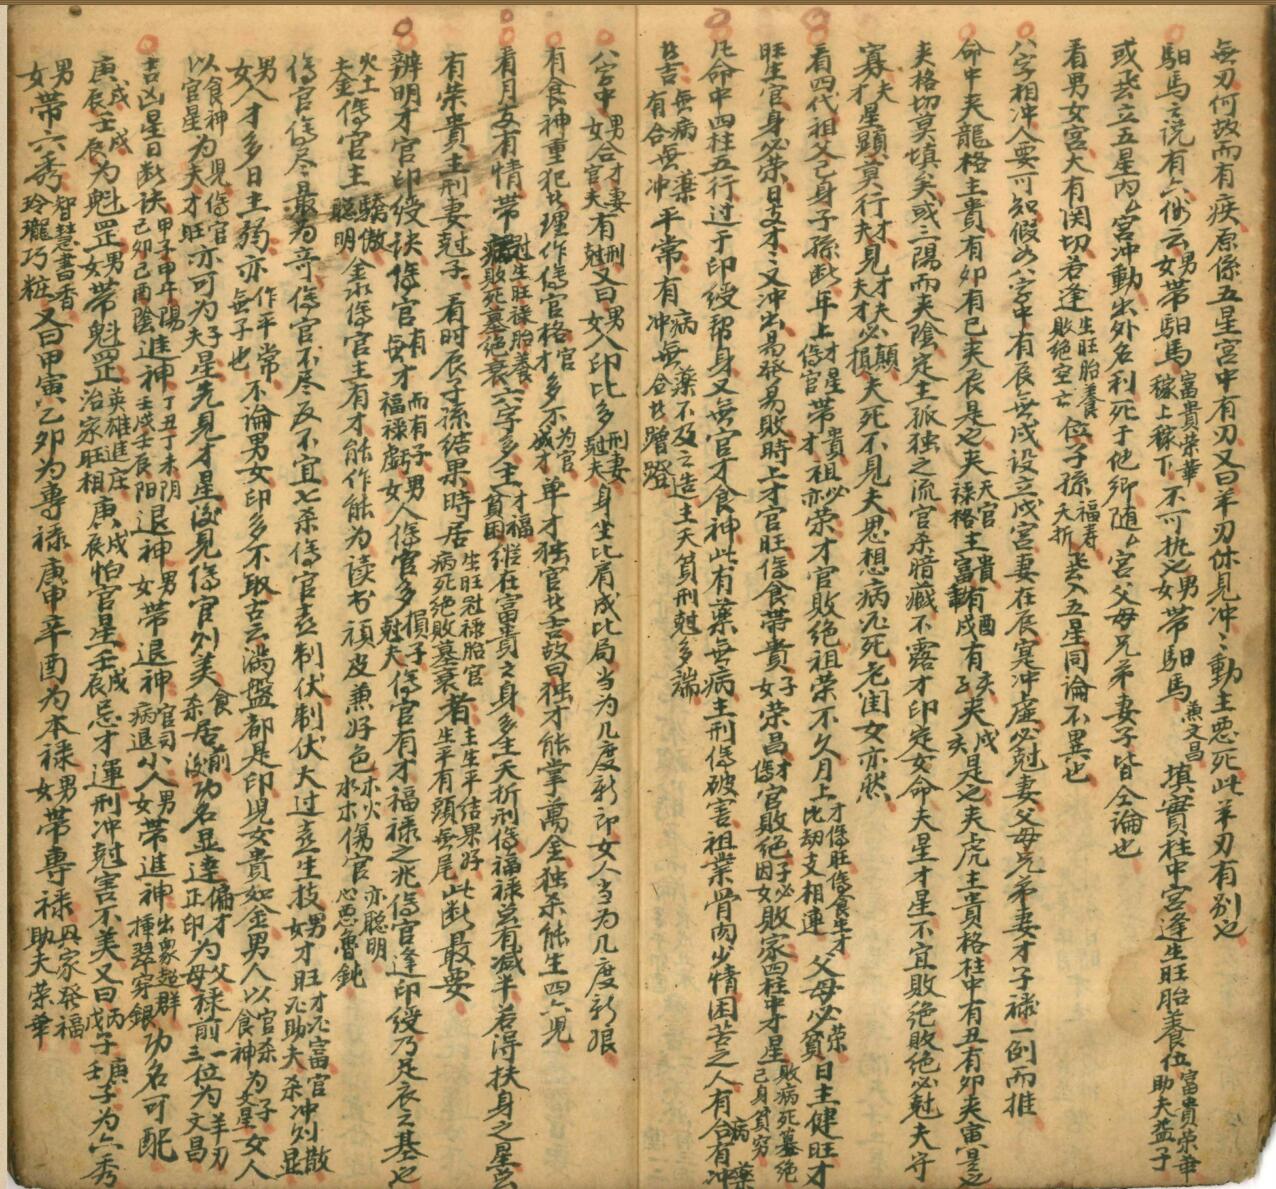 無刃何故而有疾原係五星宮中有刃又曰羊刃休見冲冲動主悪死此羊刃有别也
馹馬之説有六俻云女男帶馹馬富貴荣華稼上稼下不可执女男帶馹馬兼文昌填實柱中宮逢生旺胎養位富貴荣華助夫益子
或癸立五星内宮冲動出外名利死于他卿随宮父母兄弟妻子皆仝論也
看男女宮大有関切若逢生旺胎養敗絶空亡位子孫福寿夭折癸入五星同論不異也
八字相冲人要可知假如八字中有辰無戌设立戌宮妻在辰寔冲虚必尅妻父母兄弟妻才子禄一例而推
命中夹龍格主貴有卯有已夹辰是之夹天官禄格主貴富有酉有戌夹戌是之夹虎主貴格柱中有丑有卯夹寅是之
夹格切莫填矣或三陽而夹陰定主孤独之流官杀暗藏不露才印定女命夫星才星不宜敗绝敗绝必尅夫守
寡夫才星顕莫行夫才見夫才夫才必顛損夫死不見夫思想病沉死老闺女亦然
看四代祖父已身子孫断年上才星傷官帶才貴祖必亦荣才官敗绝祖荣不久月上才俻旺俻食生才比刼支相連父母必荣貧日主健旺才
旺生官身必荣日支才又冲出易發易敗時上才官旺俻食带貴子女荣昌才傷官敗绝子必因女敗家四柱中才星敗病死墓绝己身貧穷
凡命中四柱五行过于印绶帮身又無官才食神此有薬無病主刑傷破害祖業骨肉少情困苦之人有合有冲病薬
其吉無病薬有合無冲平常有冲無合病薬不及之造主夭貧刑尅多端其蹭蹬
八字中男女合才官妻夫有刑尅又曰男女人印比多刑妻尅夫身坐比肩成比局当为几度新郎女人当为几度新娘
有食神重犯其理作傷官格官才多不为官成才单才独官其吉故曰独才能掌萬金独杀能生四六児
看月支有情帶冠生旺禄胎養病敗死墓绝衰六字多主才福貧困维在富貴之身多主夭折刑傷福禄並有减半若得扶身之星当
有荣貴主刑妻尅子看时辰子孫结果時居生旺冠禄胎官病死绝敗墓衰者主生平结果好生平有頭無尾此断最要
辨明才官印绶诀傷官有無才而有子福禄虧男女人傷官多損子尅夫傷官有才福禄之兆傷官逢印绶乃足衣之基也
火土土金傷官主驕傲聪明金水傷官主有才能作能为读书頑皮兼好色木火水木傷官亦聪明心思魯鈍
傷官傷尽最为奇傷官不尽反不宜七杀傷官喜制伏制伏太过主生技男女才旺才沉富官沉助夫杀冲则散显
男女人才多日主弱亦作平常無子也不論男女印多不取吉云满盤都是印児女貴如金男人以官杀食神为子文星女人
以食神官星为児夫傷官才旺亦可为夫子星先見才星後見傷官则美食杀居前後功名显達偏才正印为父母禄前一位三位为羊刃文昌
吉凶星日断诀甲子甲午陽己卯己酉陰進神丁丑丁未阴壬戌壬辰阳英雄進庄退神男女帶退神官司病退小人男女帶進神出衆超群揷翠穿銀功名可配
庚戌庚辰壬戌壬辰为魁罡男女帶魁罡治家旺相庚戌庚辰怕官星壬戌壬辰忌才運刑冲尅害不美又曰丙戊子庚壬子为六秀
男女帶六秀智慧書香玲瓏巧粧又曰甲寅乙卯为專禄庚申辛酉为本禄男女帶專禄興家發福助夫荣華